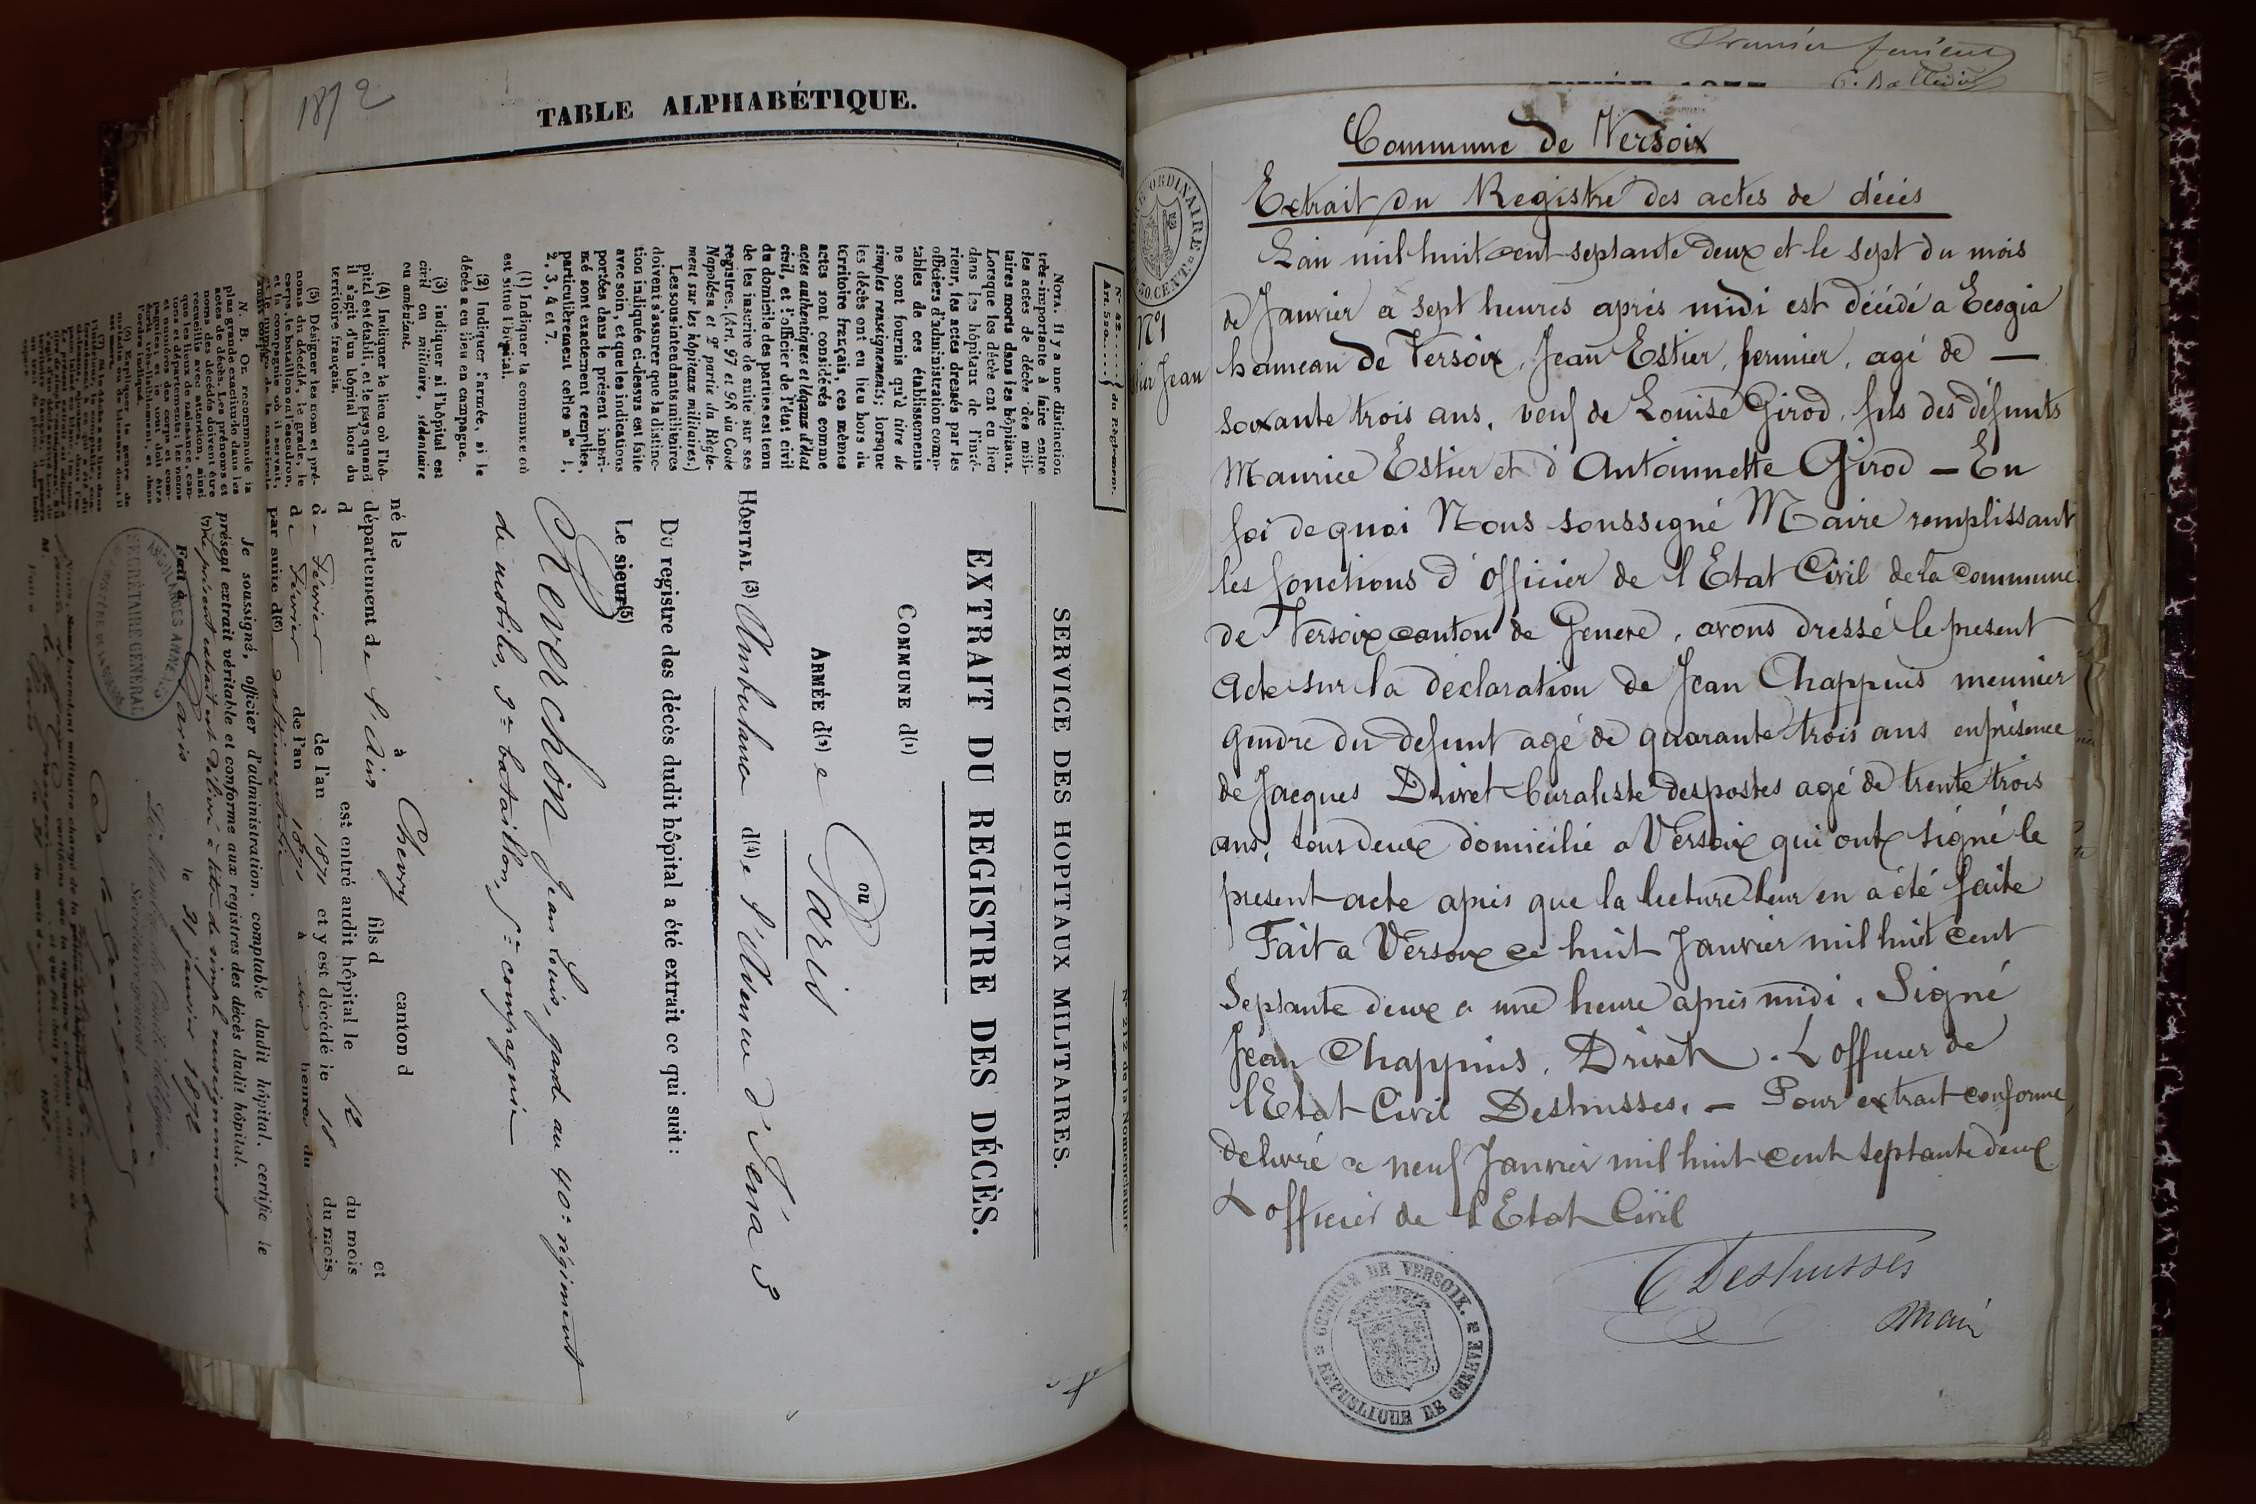 1872
TABLE ALPHABÉTIQUE.
N° 42
Art. 520
du Règlement.
N° 212 de la Nomenclature
SERVICE DES HOPITAUX MILITAIRES.
EXTRAIT DU REGISTRE DES DÉCÈS.
COMMUNE d(1)
ou
ARMÉE d(2) e Paris
HÔPITAL (3) Ambulance d(4)e l'Avenue d'Iéna 3
Du registre des décès dudit hôpital a été extrait ce qui suit :
Le sieur(5)
Reverchon Jean Louis, garde au 40e régiment
de mobiles, 3e bataillon, 5e compagnie
né le à Chevry canton d
département de l'Ain fils d et
d est entré audit hôpital le 12 du mois
de Février de l'an 1871 et y est décédé le 18 du mois
de Février de l'an 1871 à heures du
par suite d(6)
Je soussigné, officier d'administration, comptable dudit hôpital, certifie le
présent extrait véritable et conforme aux registres des décès dudit hôpital.
(7) Le présent extrait est délivré à titre de simple renseignement
Fait à Paris le 31 janvier 1872
SECRÉTAIRE GÉNÉRAL
NOTA. Il y a une distinction
très-importante à faire entre
les actes de décès des mili-
taires morts dans les hôpitaux.
Lorsque les décès ont eu lieu
dans les hôpitaux de l'inté-
rieur, les actes dressés par les
officiers d'administration comp-
tables de ces établissements
ne sont fournis qu'à titre de
simples renseignements; lorsque
les décès ont eu lieu hors du
territoire français, ces mêmes
actes sont considérés comme
actes authentiques et légaux d'état
civil, et l'officier de l'état civil
du domicile des parties est tenu
de les inscrire de suite sur ses
registres. (Art. 97 et 98 du Code
Napoléon et 2e partie du Règle-
ment sur les hôpitaux militaires.)
Les sous-intendants militaires
doivent s'assurer que la distinc-
tion indiquée ci-dessus est faite
avec soin, et que les indications
portées dans le présent impri-
mé sont exactement remplies,
particulièrement celles nos 1,
2, 3, 4 et 7.
(1) Indiquer la commune où
est situé l'hôpital.
(2) Indiquer l'armée, si le
décès a eu lieu en campagne.
(3) Indiquer si l'hôpital est
civil ou militaire, sédentaire
ou ambulant.
(4) Indiquer le lieu où l'hô-
pital est établi, et le pays quand
il s'agit d'un hôpital hors du
territoire français.
(5) Désigner les nom et pré-
noms du décédé, le grade, le
corps, le bataillon ou l'escadron,
et la compagnie où il servait,
N. B. On recommande la
plus grande exactitude dans les
actes de décès. Les prénoms et
noms des décédés doivent être
recueillis avec attention, ainsi
que les lieux de naissance, can-
tons et départements; les noms
et numéros des corps et com-
pagnies
Commune de Versoix
Extrait du Registre des actes de décès
L'an mil huit cent septante deux et le sept du mois
de Janvier à sept heures après midi est décédé a Ecogia
N° 1
hameau de Versoix, Jean Estier, fermier, agé de —
soixante trois ans, veuf de Louise Girod, fils des défunts
Maurice Estier et d'Antoinnette Girod — En
foi de quoi Nous soussigné Maire remplissant
les fonctions d'officier de l'Etat Civil de la commune
de Versoix canton de Geneve, avons dressé le present
acte sur la déclaration de Jean Chappuis meunier
gendre du defunt agé de quarante trois ans en présence
de Jacques Drivet buraliste des postes agé de trente trois
ans, tous deux domicilié a Versoix qui ont signé le
present acte apres que la lecture leur en a été faite
Fait a Versoix ce huit Janvier mil huit cent
Septante deux a une heure apres midi. Signé
Jean Chappuis, Drivet. L'officier de
l'Etat Civil Deshusses. — Pour extrait conforme
delivré ce neuf Janvier mil huit cent septante deux
L'officier de l'Etat Civil
Deshusses
Maire
COMMUNE DE VERSOIX. RÉPUBLIQUE DE GENÈVE